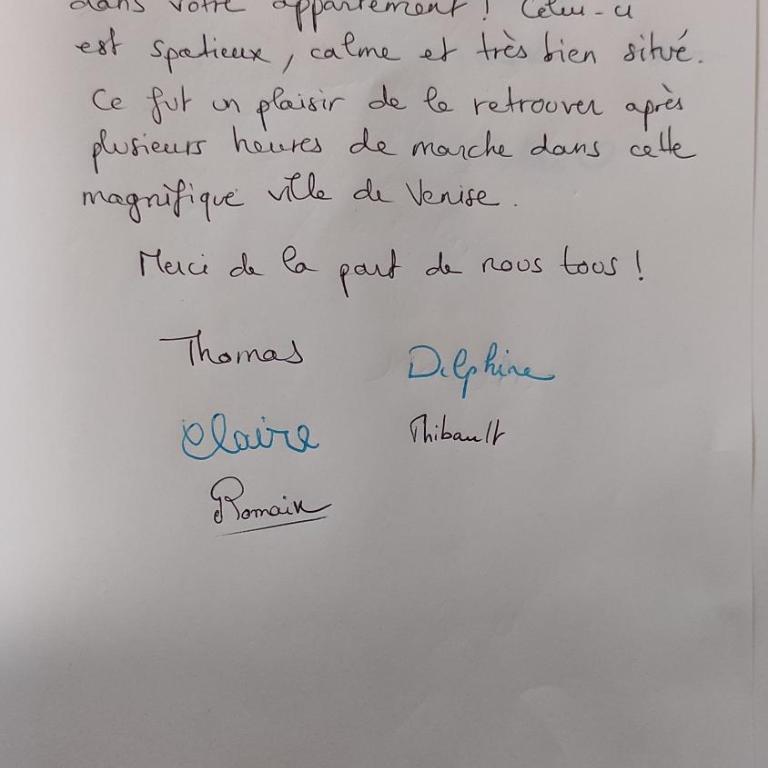 dans votre appartement ! Celui-ci
est spatieux, calme et très bien situé.
Ce fut un plaisir de le retrouver après
plusieurs heures de marche dans cette
magnifique ville de Venise.
Merci de la part de nous tous !
Thomas
Delphine
Claire
Thibault
Romain